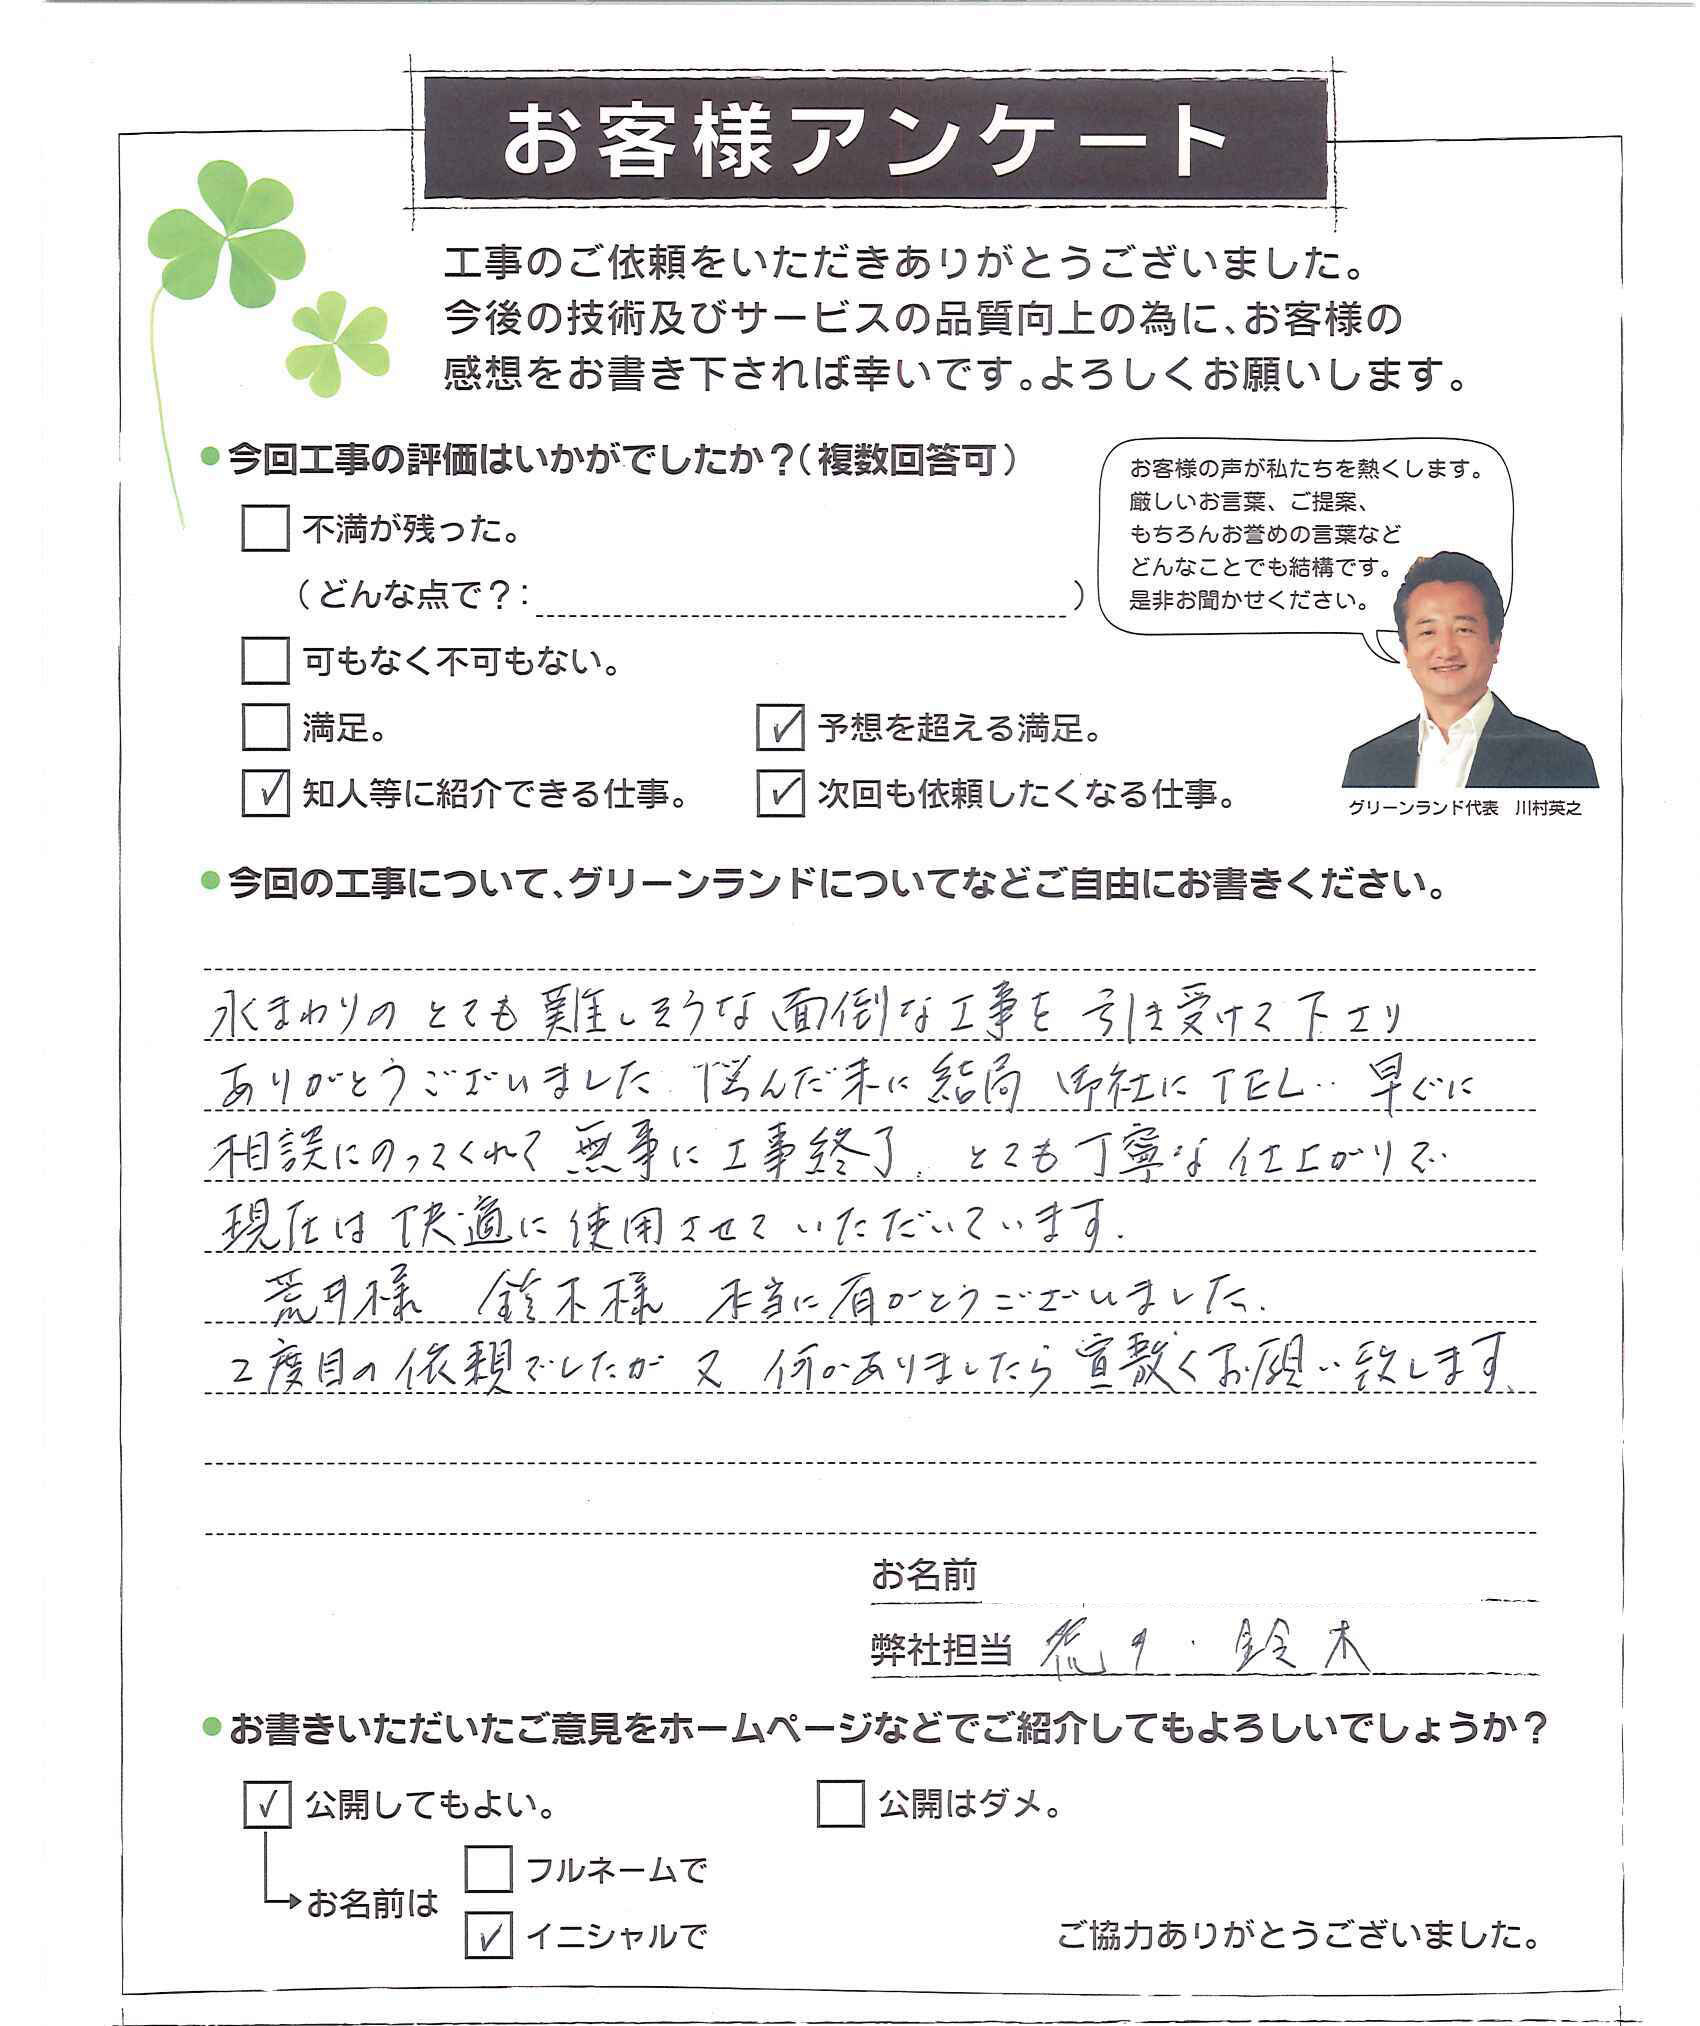 お客様アンケート
工事のご依頼をいただきありがとうございました。
今後の技術及びサービスの品質向上の為に、お客様の
感想をお書き下されば幸いです。よろしくお願いします。
今回工事の評価はいかがでしたか?(複数回答可)
お客様の声が私たちを熱くします。
厳しいお言葉、ご提案、
もちろんお誉めの言葉など
どんなことでも結構です。
是非お聞かせください。
不満が残った。
(どんな点で?: )
可もなく不可もない。
満足。
✓ 予想を超える満足。
✓ 知人等に紹介できる仕事。
✓ 次回も依頼したくなる仕事。
グリーンランド代表 川村英之
今回の工事について、グリーンランドについてなどご自由にお書きください。
水まわりの とても 難しそうな 面倒な工事を 引き受けて下エリ
ありがとうございました 悩んだ末に 結局 御社に TEL‥ 早ぐに
相談にのってくれて 無事に 工事終了. とても 丁寧な 仕上がりで
現在は 快適に 使用させて いただいています.
荒井様 鈴木様 本当に 有がとうございました.
2度目の 依頼でしたが 又 何かありましたら 宜敷くお願い致します.
お名前
弊社担当 荒井・鈴木
お書きいただいたご意見をホームページなどでご紹介してもよろしいでしょうか?
✓ 公開してもよい。
公開はダメ。
お名前は
フルネームで
✓ イニシャルで
ご協力ありがとうございました。